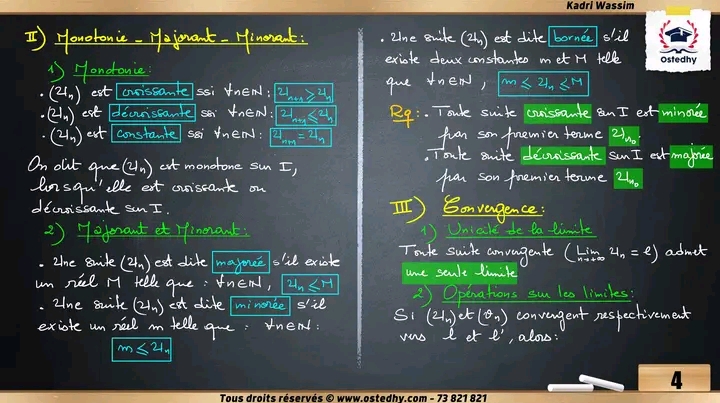 Kadri Wassim
Ostedhy
II) Monotonie - Majorant - Minorant :
1) Monotonie :
. (Un) est croissante ssi ∀n∈IN : Un+1 ≥ Un
. (Un) est décroissante ssi ∀n∈IN : Un+1 ≤ Un
. (Un) est constante ssi ∀n∈IN : Un+1 = Un
On dit que (Un) est monotone sur I,
lorsqu'elle est croissante ou
décroissante sur I.
2) Majorant et Minorant :
. Une suite (Un) est dite majorée s'il existe
un réel M telle que : ∀n∈IN, Un ≤ M
. Une suite (Un) est dite minorée s'il
existe un réel m telle que : ∀n∈IN :
m ≤ Un
. Une suite (Un) est dite bornée s'il
existe deux constantes m et M telle
que ∀n∈IN, m ≤ Un ≤ M
Rq : . Toute suite croissante sur I est minorée
par son premier terme Un0.
. Toute suite décroissante sur I est majorée
par son premier terme Un0
III) Convergence :
1) Unicité de la limite
Toute suite convergente (Lim n→+∞ Un = l) admet
une seule limite
2) Opérations sur les limites :
Si (Un) et (Vn) convergent respectivement
vers l et l', alors :
4
Tous droits réservés © www.ostedhy.com - 73 821 821